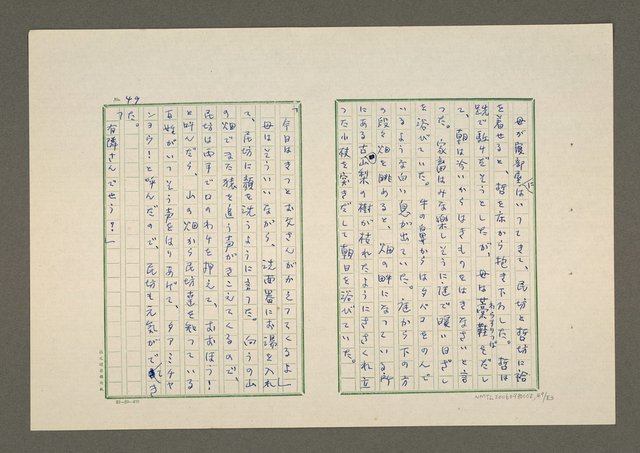 母が寝部屋にはいつてきて、民坊と哲坊に袷
を着せると、哲を床から抱き下わした。哲は
跣で駈けだそうとしたが、母は藁鞋をだし
わらすりつぱ
て、朝は冷いからはきものをはきなさいと言
つた。家畜はみな楽しそうに庭で暖い日ざし
を浴びていた。牛の鼻からはタバコをのんで
いるような白い息が出ていた。庭から下の方
の段々畑を眺めると、畑の畔になつている所
にある古い山梨の樹が枯れたようにささくれ立
つた小枝を突きだして朝日を浴びていた。
№ 49
「今日はきつとお父さんがかえつてくるよ」
母はそういいながら、洗面器にお湯を入れ
て、民坊に顔を洗うように言つた。向うの山
の畑でまた猿を追う声がきこえてくるので、
民坊は両手で口のわきを押えて、おおほう！
と呼んだら、山の畑から民坊達を知つている
百姓がいつそう声をはりあげて、タアミチヤ
ンヨウ！と呼んだので、民坊も元気がでてき
た。
「有隣さんでせう？」
NMTL20060480008, 49/83